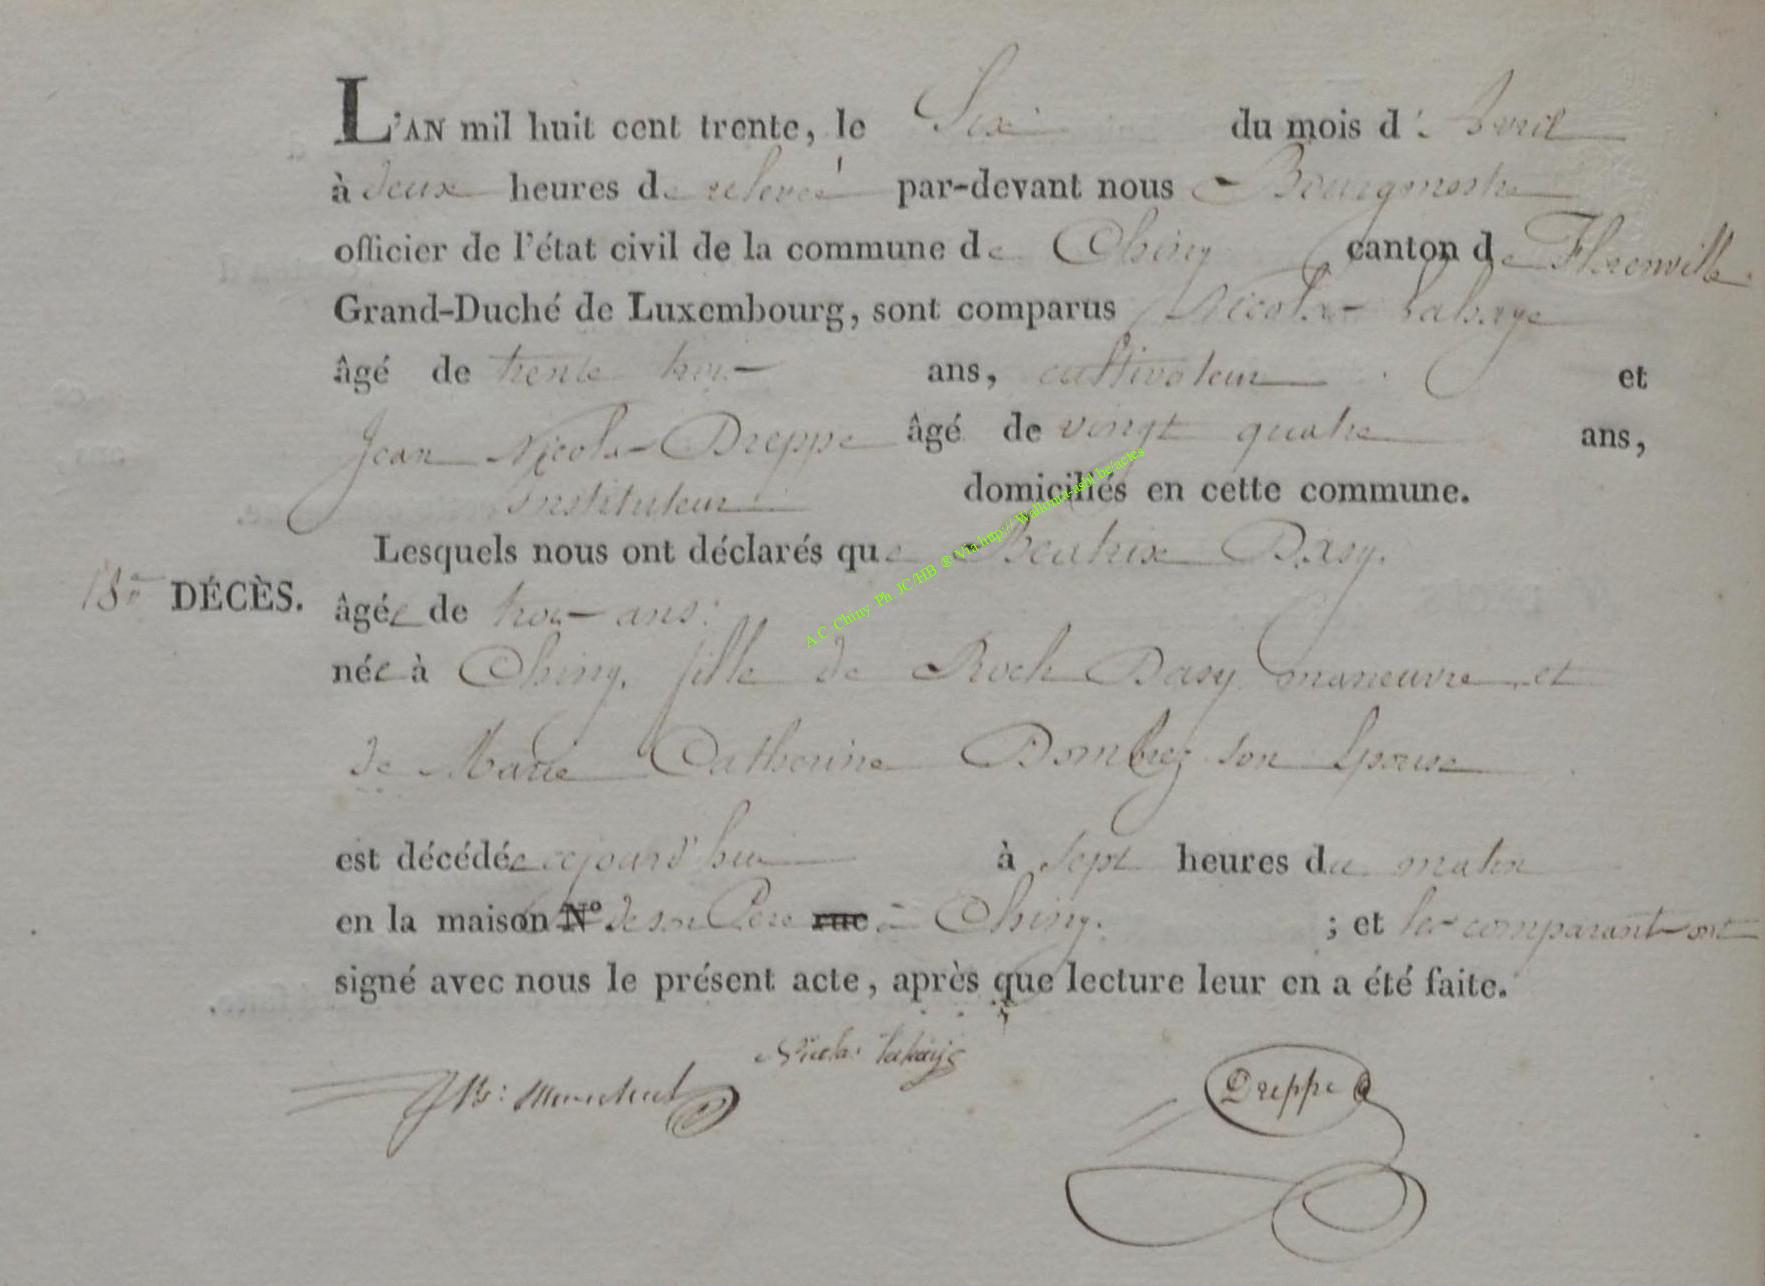 L'AN mil huit cent trente, le Six du mois d'Avril
à deux heures de relevé par-devant nous Bourgmestre
officier de l'état civil de la commune de Chiny canton de Florenville
Grand-Duché de Luxembourg, sont comparus Nicolas Lahaye
âgé de trente trois ans, cultivateur et
Jean Nicolas Dreppe âgé de vingt quatre ans,
instituteur domiciliés en cette commune.
Lesquels nous ont déclarés que Beatrix Dasy.
18me DÉCÈS. âgée de trois ans.
née à Chiny. fille de Roch Dasy maneuvre et
de Marie Catherine Dombrez son Epouse
est décédée cejourd'hui à Sept heures du matin
en la maison N° de son Père rue à Chiny. ; et les comparants ont
signé avec nous le présent acte, après que lecture leur en a été faite.
Nicolas Lahaye
Dreppe
A.C. Chiny Ph JC/HB ® Via http://Wallonia-asbl.be/actes